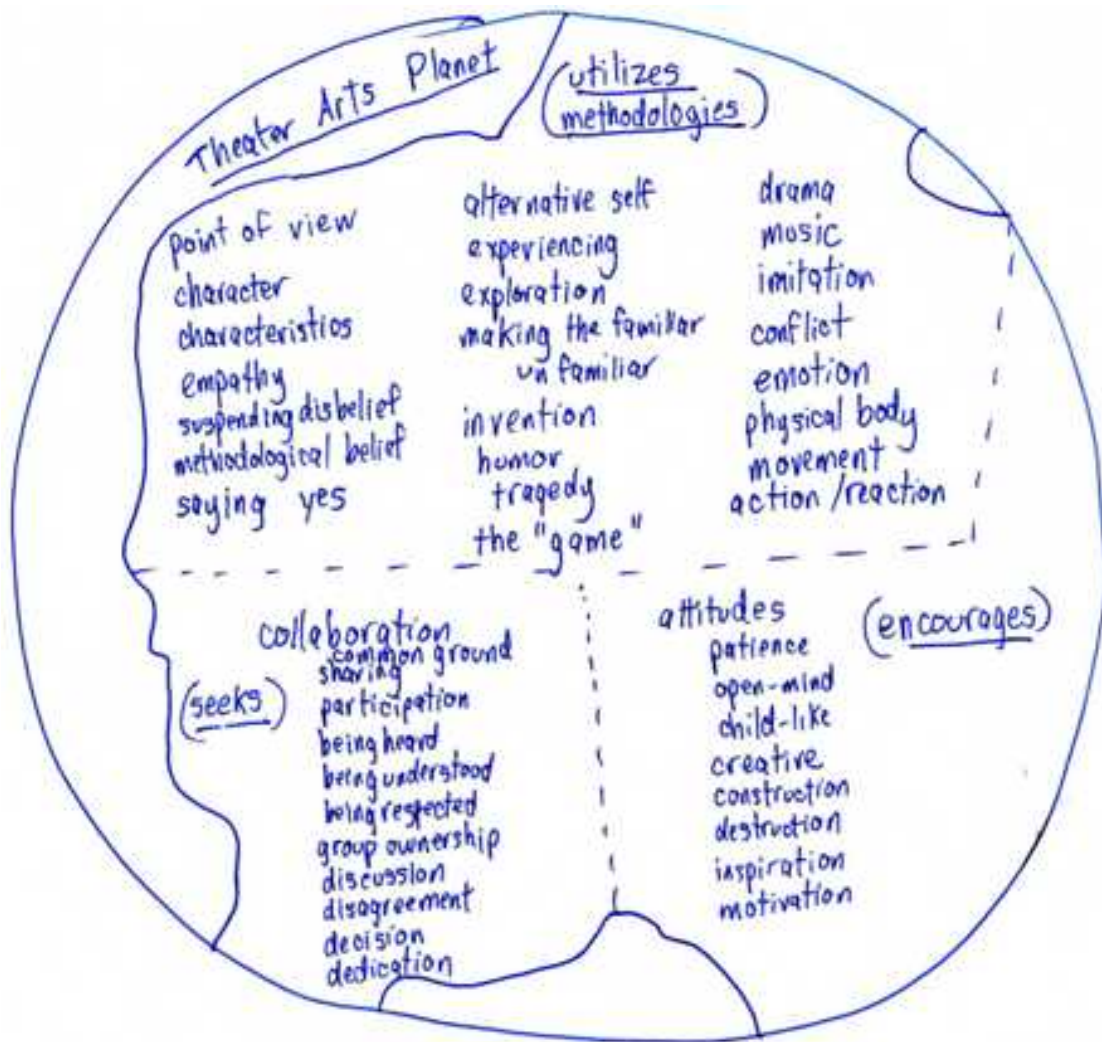 Theater Arts Planet
(utilizes
methodologies)
point of view
character
characteristics
empathy
suspending disbelief
methodological belief
saying yes
alternative self
experiencing
exploration
making the familiar
unfamiliar
invention
humor
tragedy
the "game"
drama
music
imitation
conflict
emotion
physical body
movement
action/reaction
(seeks)
collaboration
common ground
sharing
participation
being heard
being understood
being respected
group ownership
discussion
disagreement
decision
dedication
(encourages)
attitudes
patience
open-mind
child-like
creative
construction
destruction
inspiration
motivation